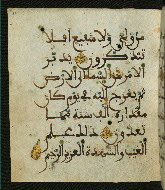 من ولي ولا شفيع افلا
تتذكرون يدبر
الامر من السما الى الارض
ثم يعرج اليه في يوم كان
مقداره الف سنة مما
تعدون ذلك علم
الغيب والشهدة العزيز الرحيم